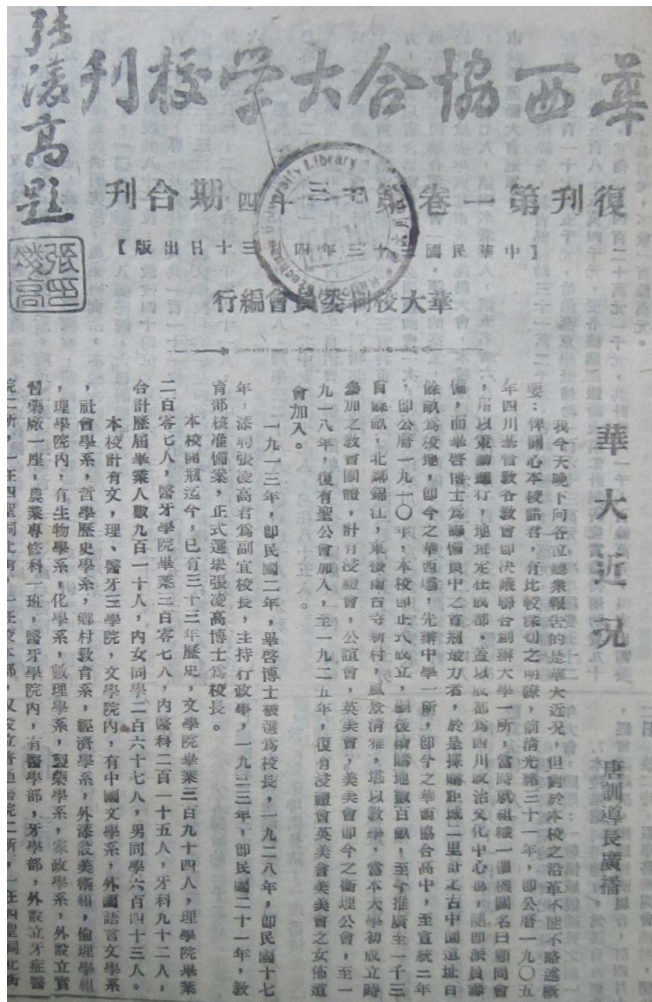 華西協合大学校刊
張凌高題
張凌高印
復刊第一卷第十三十四期合刊
【中華民國三十三年四月三十日出版】
華大校刊委員會編行
University Library
華大近況
唐訓導長廣播
我今天晚下向各位總業報告的是華大近况,但對於本校之沿革不能不略述概
要;俾關心本校諸君,有比較深切之明瞭,前清光緒三十一年,即公曆一九〇五
年四川基督教各教會即決議聯合創辦大學一所,當時就組織一個機關名曰顧問會
,用以策動進行,地址定在成都,蓋以成都為四川政治文化中心也,隨即派員籌
備,而畢啓博士為籌備員中之首剏最力者,於是採購距城二里許之古中園遺址百
餘畝為校地,即今之華西壩,先辦中學一所,即今之華西協合高中,至宣統二年
,即公曆一九一〇年,本校即正式成立,嗣後續購地數百畝,至今推廣至一千三
百餘畝,北鄰錦江,東接南台寺新村,風景清雅,堪以教學,當本大學初成立時
參加之教會團體,計有浸禮會,公誼會,英美會,美美會即今之衛理公會,至一
九一八年,復有聖公會加入,至一九二五年,復有浸禮會英美會美美會之女佈道
會加入。
一九一三年,即民國二年,畢啓博士被選為校長,一九二八年,即民國十七
年,添聘張凌高君為副校長,主持行政學,一九三三年,即民國二十一年,教
育部核准備案,正式選舉張凌高博士為校長。
本校開剏迄今,已有三十三年歷史,文學院畢業三百九十四人,理學院畢業
二百零七人,醫牙學院畢業三百零七人,內醫科二百一十五人,牙科九十二人,
合計歷屆畢業人數九百一十人,內女同學二百六十七人,男同學六百四十三人。
本校計有文,理、醫牙三學院,文學院內,有中國文學系,外國語言文學系
,社會學系,哲學歷史學系,鄉村教育系,經濟學系,外添設美術組,倫理學組
,理學院內,有生物學系,化學系,數理學系,製藥學系,家政學系,外設立實
習藥廠一座,農業專修科一班,醫牙學院內,有醫學部,牙學部,外設立牙症醫
院一所,一在四聖祠北街,